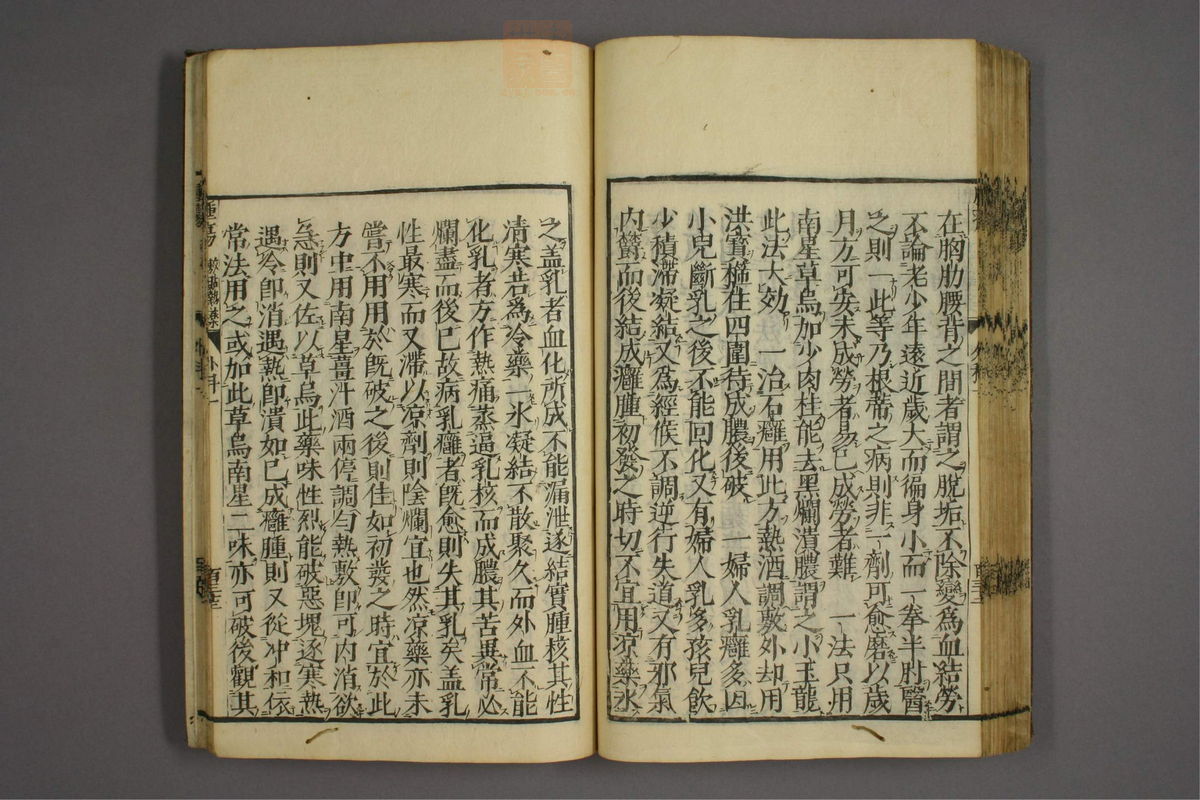 在胸肋腰背之間者謂之脫垢不除變爲血結勞
不論老少年遠近歲大而徧身小而一拳半肘醫
之則一此等乃根蒂之病則非一劑可愈磨以歲
月方可安未成勞者易已成勞者難　一法只用
南星草烏加少肉桂能去黑爛潰膿謂之小玉龍
此法大効　一治石癰用此方熱酒調敷外却用
洪箕檛在四圍待成膿後破　一婦人乳癰多因
小兒斷乳之後不能回化又有婦人乳多孩兒飲
少積滯凝結又爲經候不調逆行失道又有邪氣
内鬱而後結成癰腫初發之時切不宜用凉藥氷
之盖乳者血化所成不能漏泄遂結實腫核其性
清寒若爲冷藥一氷凝結不散聚久而外血不能
化乳者方作熱痛蒸逼乳核而成膿其苦異常必
爛盡而後已故病乳癰者既愈則失其乳矣盖乳
性最寒而又滯以凉劑則陰爛宜也然凉藥亦未
嘗不用用於既破之後則佳如初發之時宜於此
方中用南星薑汁酒兩停調勻熱敷即可内消欲
急則又佐以草烏此藥味性烈能破惡塊逐寒熱
遇冷即消遇熱即潰如已成癰腫則又從冲和依
常法用之或加此草烏南星二味亦可破後觀其